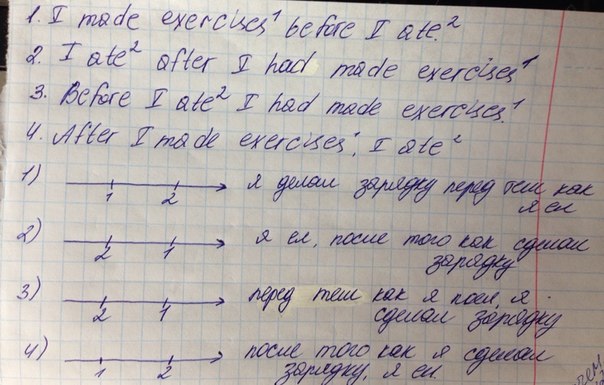 1. I made exercises¹ before I ate.²
2. I ate² after I had made exercises¹
3. Before I ate² I had made exercises.¹
4. After I made exercises¹, I ate²
1) 1 2 я делал зарядку перед тем как
я ел
2) 2 1 я ел, после того как сделал
зарядку
3) 2 1 перед тем как я поел, я
сделал зарядку
4) 1 2 после того как я сделал
зарядку, я ел.